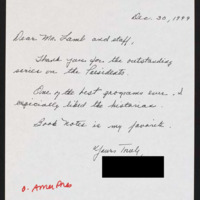 Dec. 30, 1999
Dear Mr. Lamb and staff,
Thank you for the outstanding
series on the Presidents.
One of the best programs ever. I
especially liked the historians.
Book notes is my favorite.
Yours Truly,